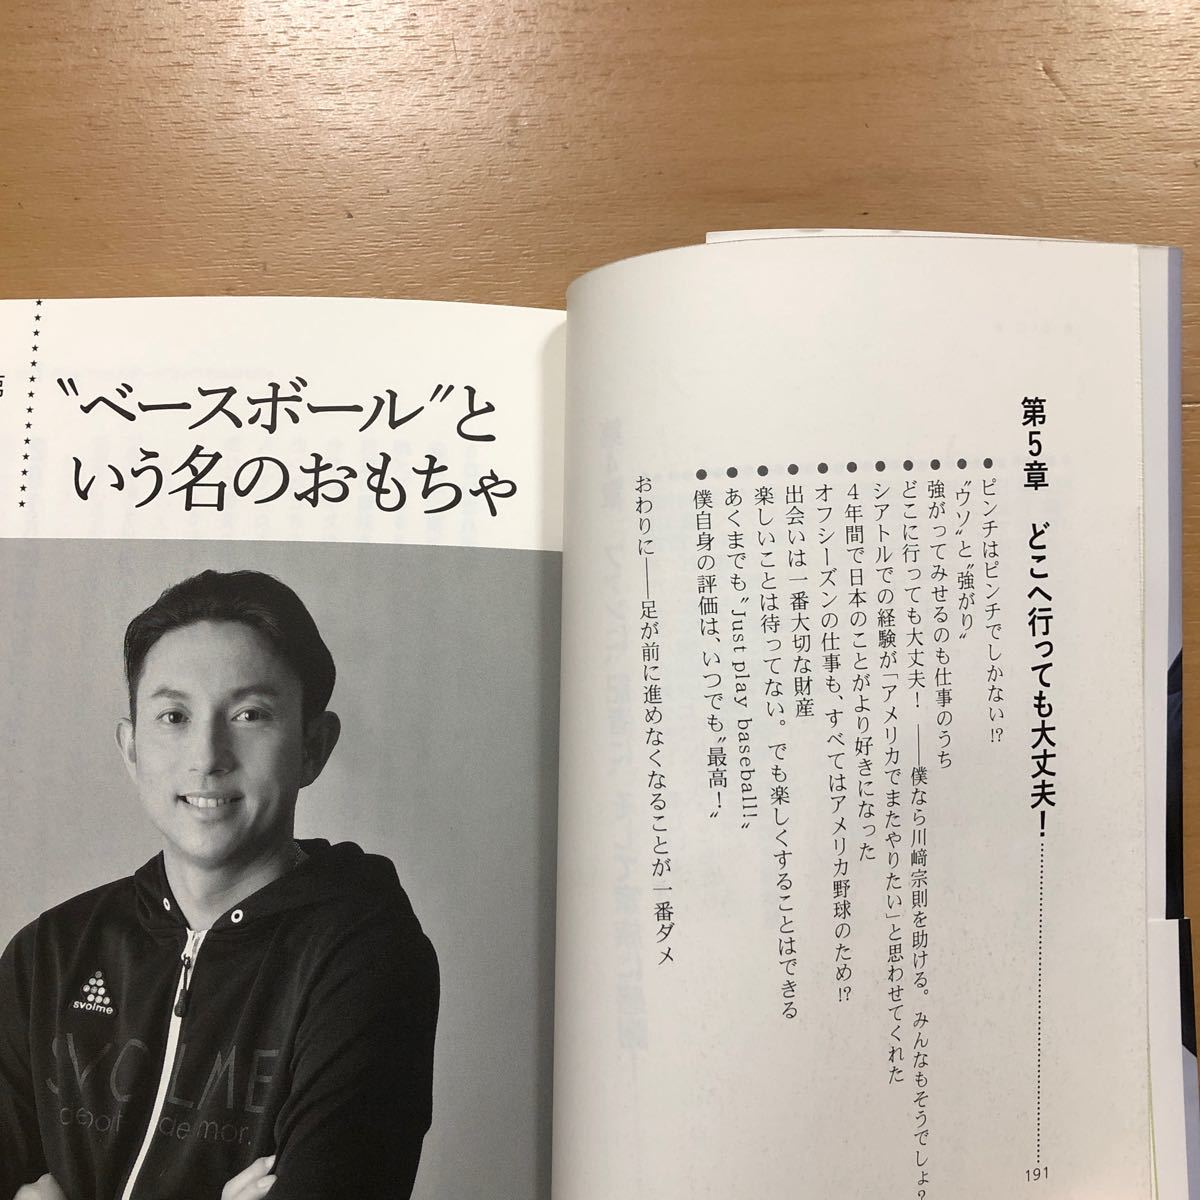 第5章 どこへ行っても大丈夫！ 191
●ピンチはピンチでしかない!?
●〝ウソ〟と〝強がり〟
●強がってみせるのも仕事のうち
●どこに行っても大丈夫！ ――僕なら川﨑宗則を助ける。みんなもそうでしょ？
●シアトルでの経験が「アメリカでまたやりたい」と思わせてくれた
●4年間で日本のことがより好きになった
●オフシーズンの仕事も、すべてはアメリカ野球のため!?
●出会いは一番大切な財産
●楽しいことは待ってない。でも楽しくすることはできる
●あくまでも〝Just play baseball!〟
●僕自身の評価は、いつでも〝最高！〟
おわりに――足が前に進めなくなることが一番ダメ
〝ベースボール〟と
いう名のおもちゃ
第
svolme
SVOLME